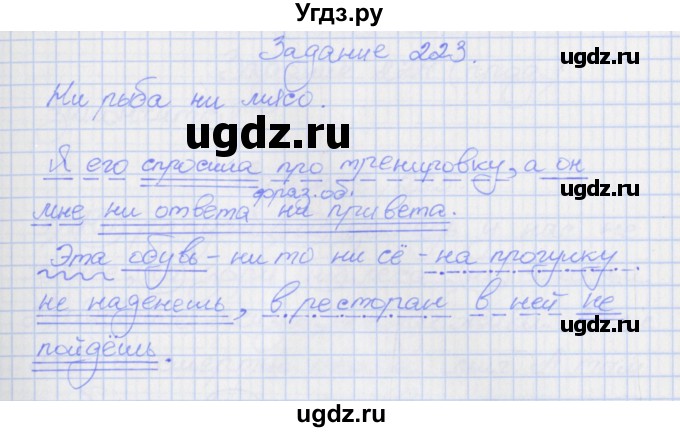 Угдз.ру
Задание 223.
ugdz.ru
Ни рыба ни мясо.
ugdz.ru
Я его спросила про тренировку, а он
фраз. об.
мне ни ответа ни привета.
ugdz.ru
Эта обувь - ни то ни сё - на прогулку
не наденешь, в ресторан в ней не
ugdz.ru
пойдёшь.
ugdz.ru